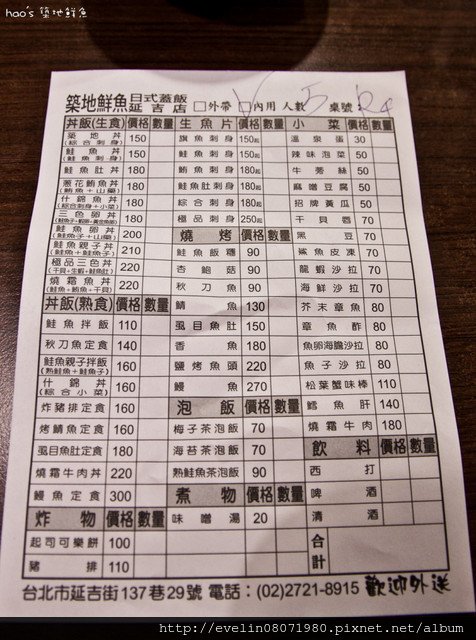 hao's 築地鮮魚
築地鮮魚 日式蓋飯 延吉店 □外帶 □內用 人數 5 桌號
丼飯(生食) 價格 數量 生魚片 價格 數量 小菜 價格 數量
築地丼 (綜合刺身) 150 旗魚刺身 150起 溫泉蛋 30
鮭魚丼 (鮭魚刺身) 150 鮭魚刺身 150起 辣味泡菜 50
鮭魚肚丼 180 鮪魚刺身 180起 牛蒡絲 50
蔥花鮪魚丼 (鮪魚+山藥) 180 鮭魚肚刺身 180起 麻噌豆腐 50
什錦魚丼 (綜合刺身+小菜) 180 綜合刺身 180起 招牌黃瓜 50
三色卵丼 (鮭魚子+蝦卵+黃金魚卵) 180 極品刺身 250起 干貝唇 70
鮭魚卵丼 (鮭魚子+山藥) 200 燒烤 價格 數量 黑豆 70
鮭魚親子丼 (鮭魚+鮭魚子) 210 鮭魚飯糰 90 鯊魚皮凍 70
極品三色丼 (干貝+生蝦+鮭魚肚) 220 杏鮑菇 90 龍蝦沙拉 70
燒霜魚丼 (鮭魚+鮪魚+干貝) 220 秋刀魚 90 海鮮沙拉 70
丼飯(熟食) 價格 數量 鯖魚 130 芥末章魚 80
鮭魚拌飯 110 虱目魚肚 150 章魚酢 80
秋刀魚定食 140 香魚 180 魚卵海膽沙拉 80
鮭魚親子拌飯 (熟鮭魚+鮭魚子) 160 鹽烤魚頭 220 魚子沙拉 80
什錦丼 (綜合小菜) 160 鰻魚 270 松葉蟹味棒 110
炸豬排定食 160 泡飯 價格 數量 鱈魚肝 140
烤鯖魚定食 160 梅子茶泡飯 70 燒霜牛肉 180
虱目魚肚定食 180 海苔茶泡飯 70 飲料 價格 數量
燒霜牛肉丼 220 熟鮭魚茶泡飯 90 西打
鰻魚定食 300 煮物 價格 數量 啤酒
炸物 價格 數量 味噌湯 20 清酒
起司可樂餅 100 合計
豬排 110
台北市延吉街137巷29號 電話:(02)2721-8915 歡迎外送
http://evelin08071980.pixnet.net/album